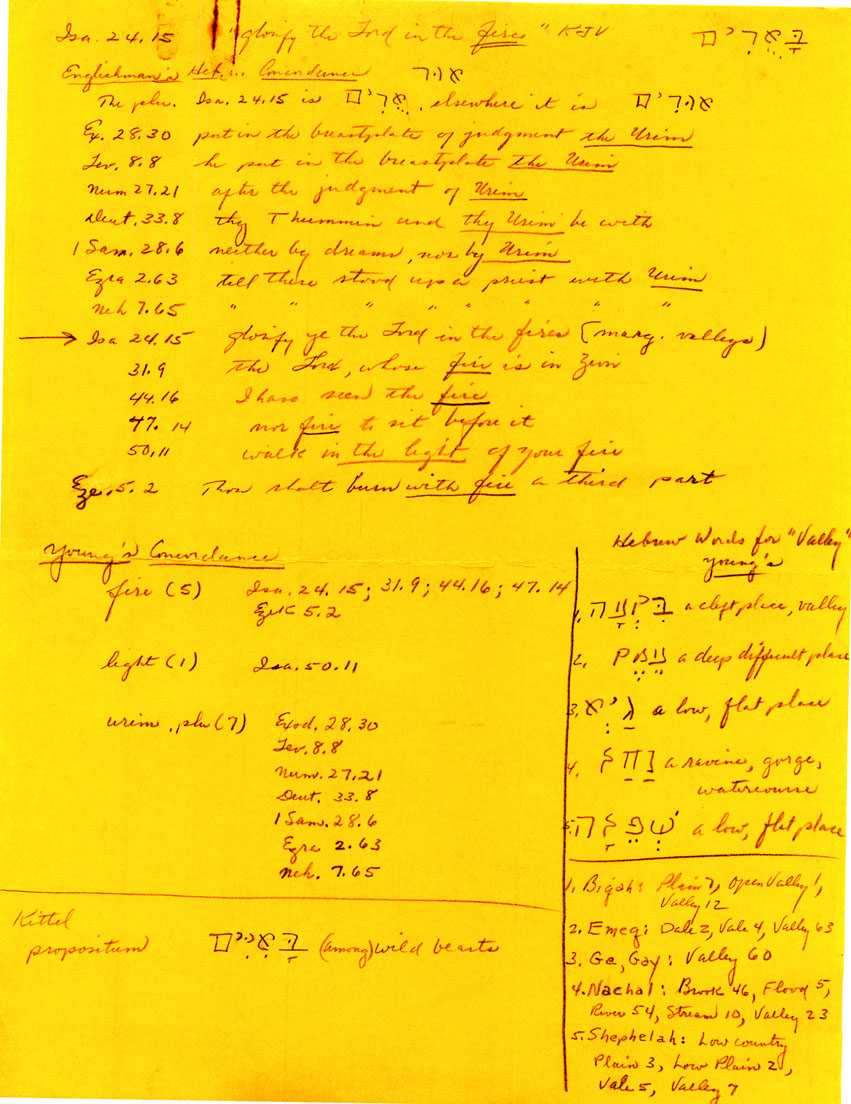 Isa. 24.15 "glorify the Lord in the fires" KJV בָּאֻרִים
Englishman's Heb. Concordance אוּר
The plu. Isa. 24.15 is אֻרִים, elsewhere it is אוּרִים
Ex. 28.30 put in the breastplate of judgment the Urim
Lev. 8.8 he put in the breastplate the Urim
Num 27.21 after the judgment of Urim
Deut. 33.8 thy Thummin and thy Urim be with
1 Sam. 28.6 neither by dreams, nor by Urim
Ezra 2.63 till there stood up a priest with Urim
Neh 7.65 " " " " " " " "
→ Isa 24.15 glorify ye the Lord in the fires (marg. valleys)
31.9 the Lord, whose fire is in Zion
44.16 I have seen the fire
47.14 nor fire to sit before it
50.11 walk in the light of your fire
Eze. 5.2 Thou shalt burn with fire a third part
Young's Concordance
fire (5) Isa. 24.15; 31.9; 44.16; 47.14
Ezek 5.2
light (1) Isa. 50.11
urim, plu (7) Exod. 28.30
Lev. 8.8
Num. 27.21
Deut. 33.8
1 Sam. 28.6
Ezra 2.63
Neh. 7.65
Kittel
propositum (among) wild beasts
Hebrew Words for "Valley"
Young's
1. בִּקְעָה a cleft place, valley
2. עֵמֶק a deep difficult place
3. גַּיְא a low, flat place
4. נַחַל a ravine, gorge,
watercourse
5. שְׁפֵלָה a low, flat place
1. Biqah: Plain 7, Open Valley 1,
Valley 12
2. Emeq: Dale 2, Vale 4, Valley 63
3. Ge, Gay: Valley 60
4. Nachal: Brook 46, Flood 5,
River 54, Stream 10, Valley 23
5. Shephelah: Low country
Plain 3, Low Plain 2,
Vale 5, Valley 7